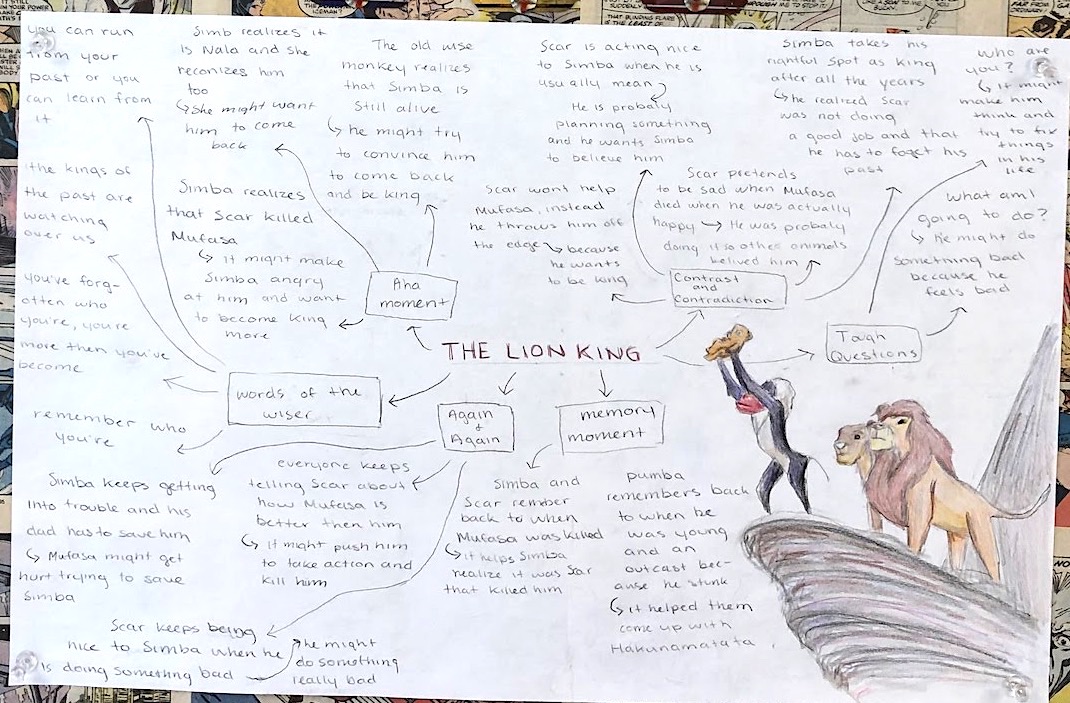 THE LION KING
Aha
moment
Simb realizes it
is Nala and she
reconizes him
too
↳ She might want
him to come
back
The old wise
monkey realizes
that Simba is
still alive
↳ he might try
to convince him
to come back
and be king
Simba realizes
that Scar killed
Mufasa
↳ it might make
Simba angry
at him and want
to become king
more
Contrast
and
Contradiction
Scar is acting nice
to Simba when he is
usually mean
He is probaly
planning something
and he wants Simba
to believe him
Scar wont help
Mufasa, instead
he throws him off
the edge → because
he wants
to be king
Scar pretends
to be sad when Mufasa
died when he was actually
happy → He was probaly
doing it so other animals
belived him
Simba takes his
rightful spot as King
after all the years
↳ he realized Scar
was not doing
a good job and that
he has to foget his
past
Tough
Questions
Who are
you?
↳ it might
make him
think and
try to fix
things
in his
life
What am I
going to do?
↳ he might do
something bad
because he
feels bad
words of the
wiser
you can run
from your
past or you
can learn from
it
the kings of
the past are
watching
over us
you've forg-
otten who
you're, you're
more then you've
become
remember who
you're
Again
&
Again
Simba keeps getting
into trouble and his
dad has to save him
↳ Mufasa might get
hurt trying to save
Simba
everyone keeps
telling Scar about
how Mufasa is
better then him
↳ it might push him
to take action and
kill him
Scar keeps being
nice to Simba when he
is doing something bad
he might
do something
really bad
memory
moment
Simba and
Scar rember
back to when
Mufasa was killed
↳ it helps Simba
realize it was Scar
that killed him
pumba
remembers back
to when he
was young
and an
outcast bec-
ause he stunk
↳ it helped them
come up with
Hakunamatata